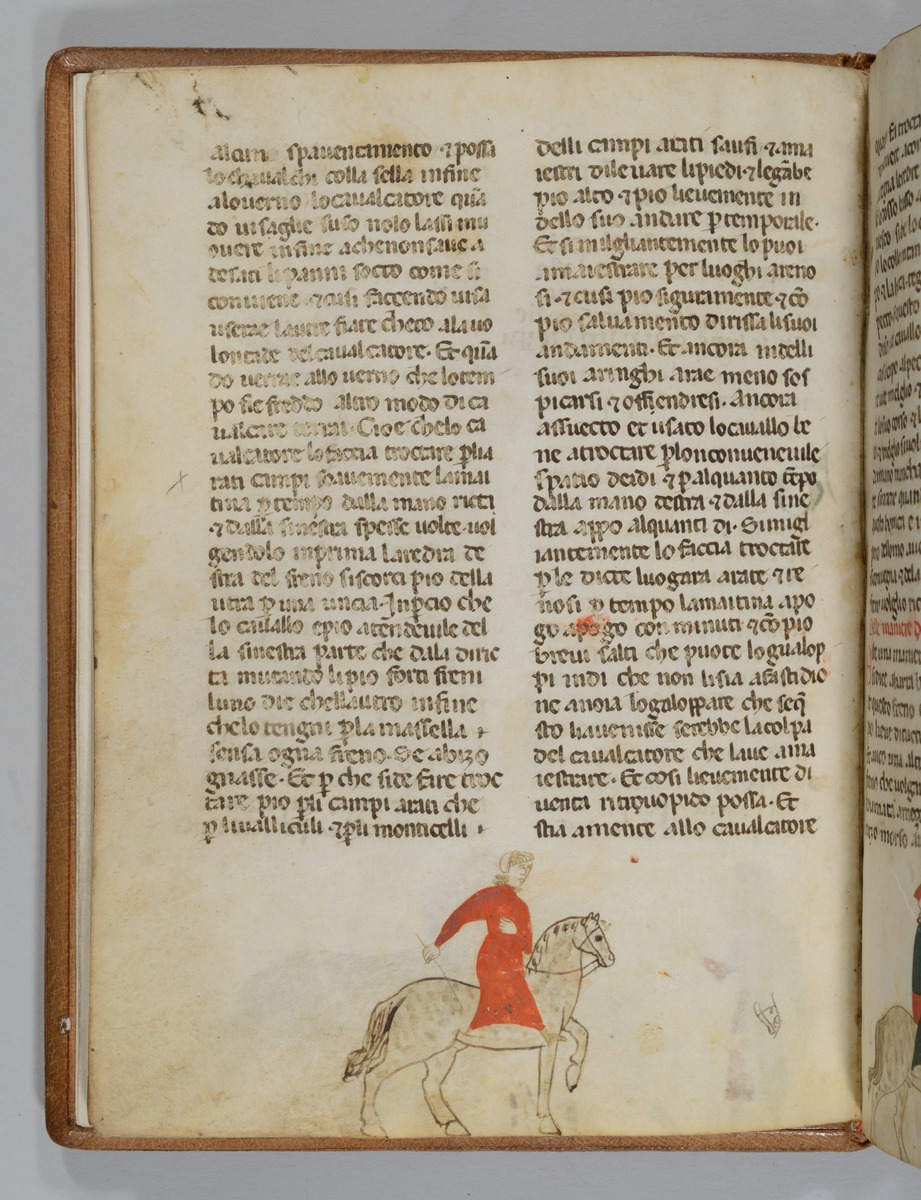 alcun spauentamento ⁊ possa
lo chaualchi colla sella infine
alouerno locaualcatore quā
do ui saglie suso nolo lassi mu
ouere infine achenonsaue a
desati li panni socto come si
conuiene ⁊ cusi faccendo uisa
userae laurie fiate checto ala uo
lontade del caualcatore· Et quā
do uerrae allo uerno che lotem
po sie freddo altro modo di ca
ualcare terrai· Cioe chelo ca
ualcatore lo faccia troctare plia
rati campi soauemente lamai
tina p tempo dalla mano ricti
⁊ dalla sinestra spesse uolte uol
gendolo inprima laredina de
stra del freno si scorci pio della
utra p una uncia· Inpcio che
lo cauallo epio atendeuile del
la sinestra parte che dala diric
ta mutando li pio forti freni
luno die chellautro infine
chelo tengni pla massella
sensa ogna freno· Se abizo
gnasse· Et p che side fare troc
tare pio pli campi arati che
p liualliculi ⁊ pli monticelli
delli campi arati sausi ⁊ ama
iestri dileuare lipiedi ⁊ legābe
pio alto ⁊ pio lieuemente in
dello suo andare p temporale·
Et similgliantemente lo puoi
amaestrare per luoghi areno
si ⁊ cusi pio siguramente ⁊ cō
pio saluamento dirissa lisuoi
andamenti· Et ancora indelli
suoi aringhi arae meno sos
picarsi ⁊ offendresi· Ancora
assuecto et usato locauallo be
ne atroctare plonconueneuile
spatio deidi ⁊ palquanto tēpo
dalla mano destra ⁊ dalla sine
stra appo alquanti di· Simigl
iantemente lo faccia troctare
p le dicte luogara arate ⁊ re
nosi p tempo lamaitina apo
go apogo con minuti ⁊ cō pio
breui salti che puote lo gualop
pi indi che non lisia afastidio
ne anoia logaloppare che seq̄
sto hauenisse serebbe lacolpa
del caualcatore che laue ama
iestrare· Et cosi lieuemente di
uenta possa· Et
stia amente allo caualcatore